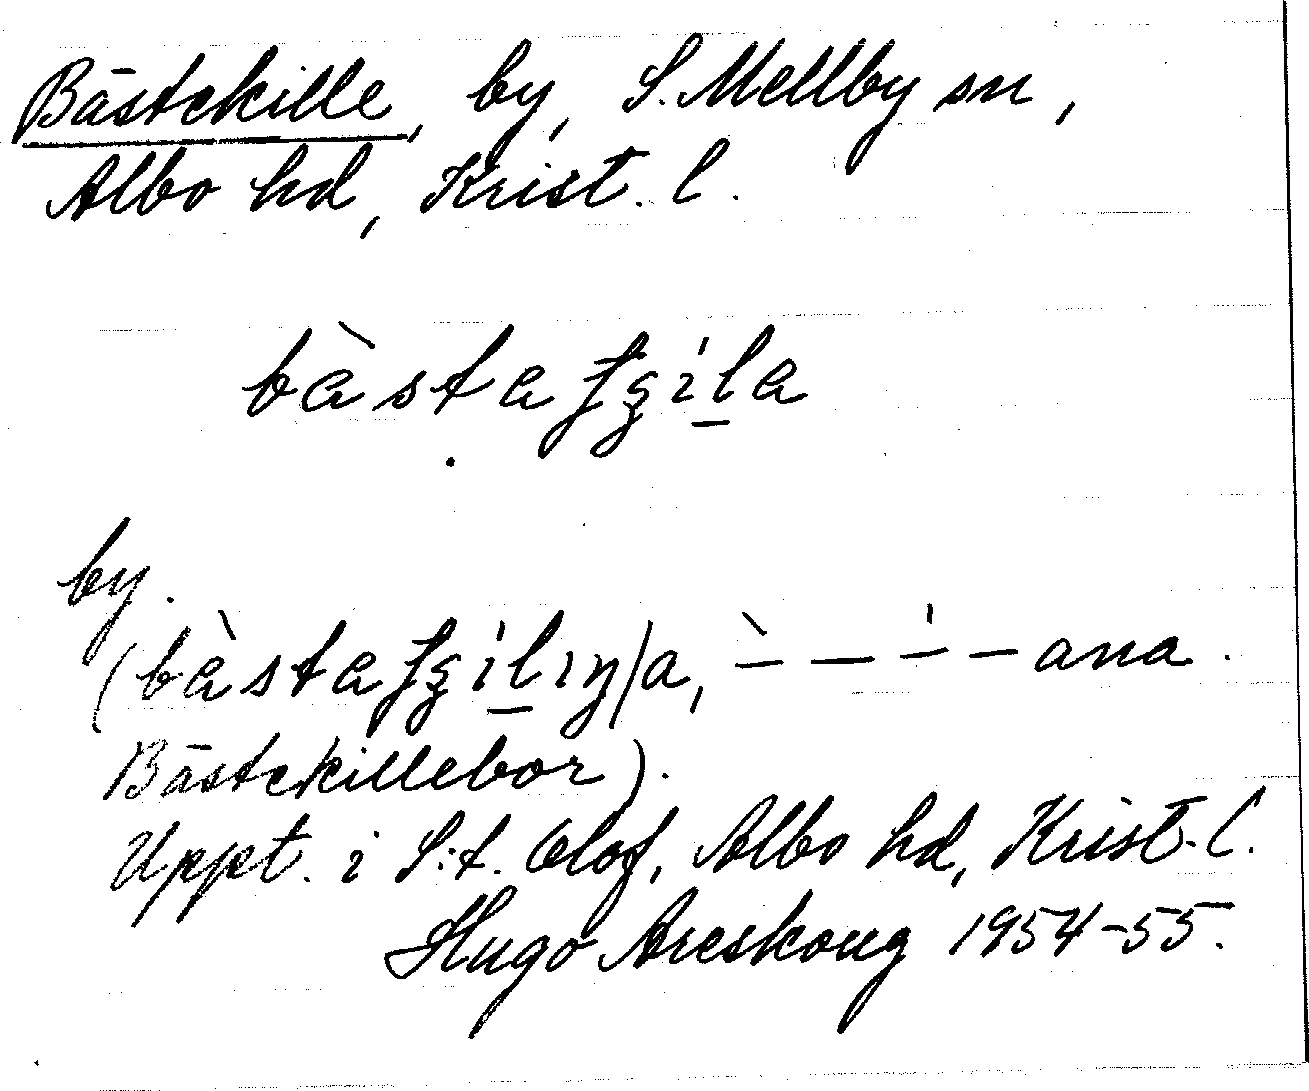 Bästekille, by, S. Mellby sn,
Albo hd, Krist. l.
bàstaʃʒíla
by.
(bàstaʃʒílıŋ/a, `– – ´– – ana.
Bästekillebor).
Uppt. i S:t. Olof, Albo hd, Krist. l.
Hugo Areskoug 1954-55.